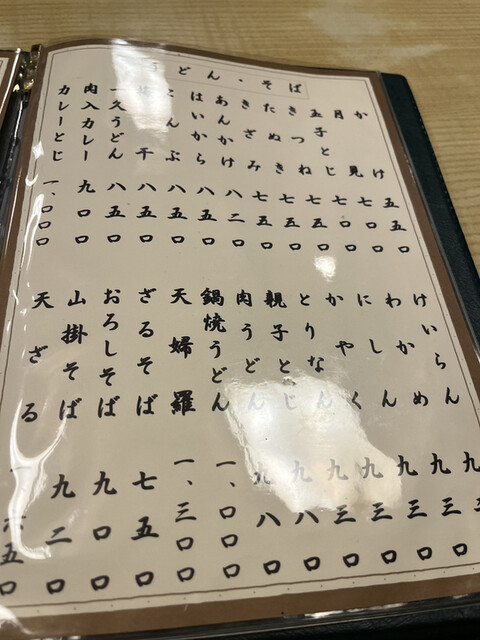 うどん・そば
かけ 五五〇
月見 七〇〇
玉子とじ 七〇〇
きつね 七五〇
たぬき 七五〇
きざみ 七五〇
あんかけ 八二〇
はいから 八五〇
こんぶ 八五〇
干 八五〇
一久うどん 八五〇
肉入カレー 九〇〇
カレーとじ 一、〇〇〇
けいらん
わかめ 九三〇
にしん 九三〇
かやく 九三〇
とりなん 九三〇
親子とじ 九八〇
肉うどん 九八〇
鍋焼うどん 一、〇〇〇
天婦羅 一、三〇〇
ざるそば 七五〇
おろしそば 九〇〇
山掛そば 九二〇
天ざる